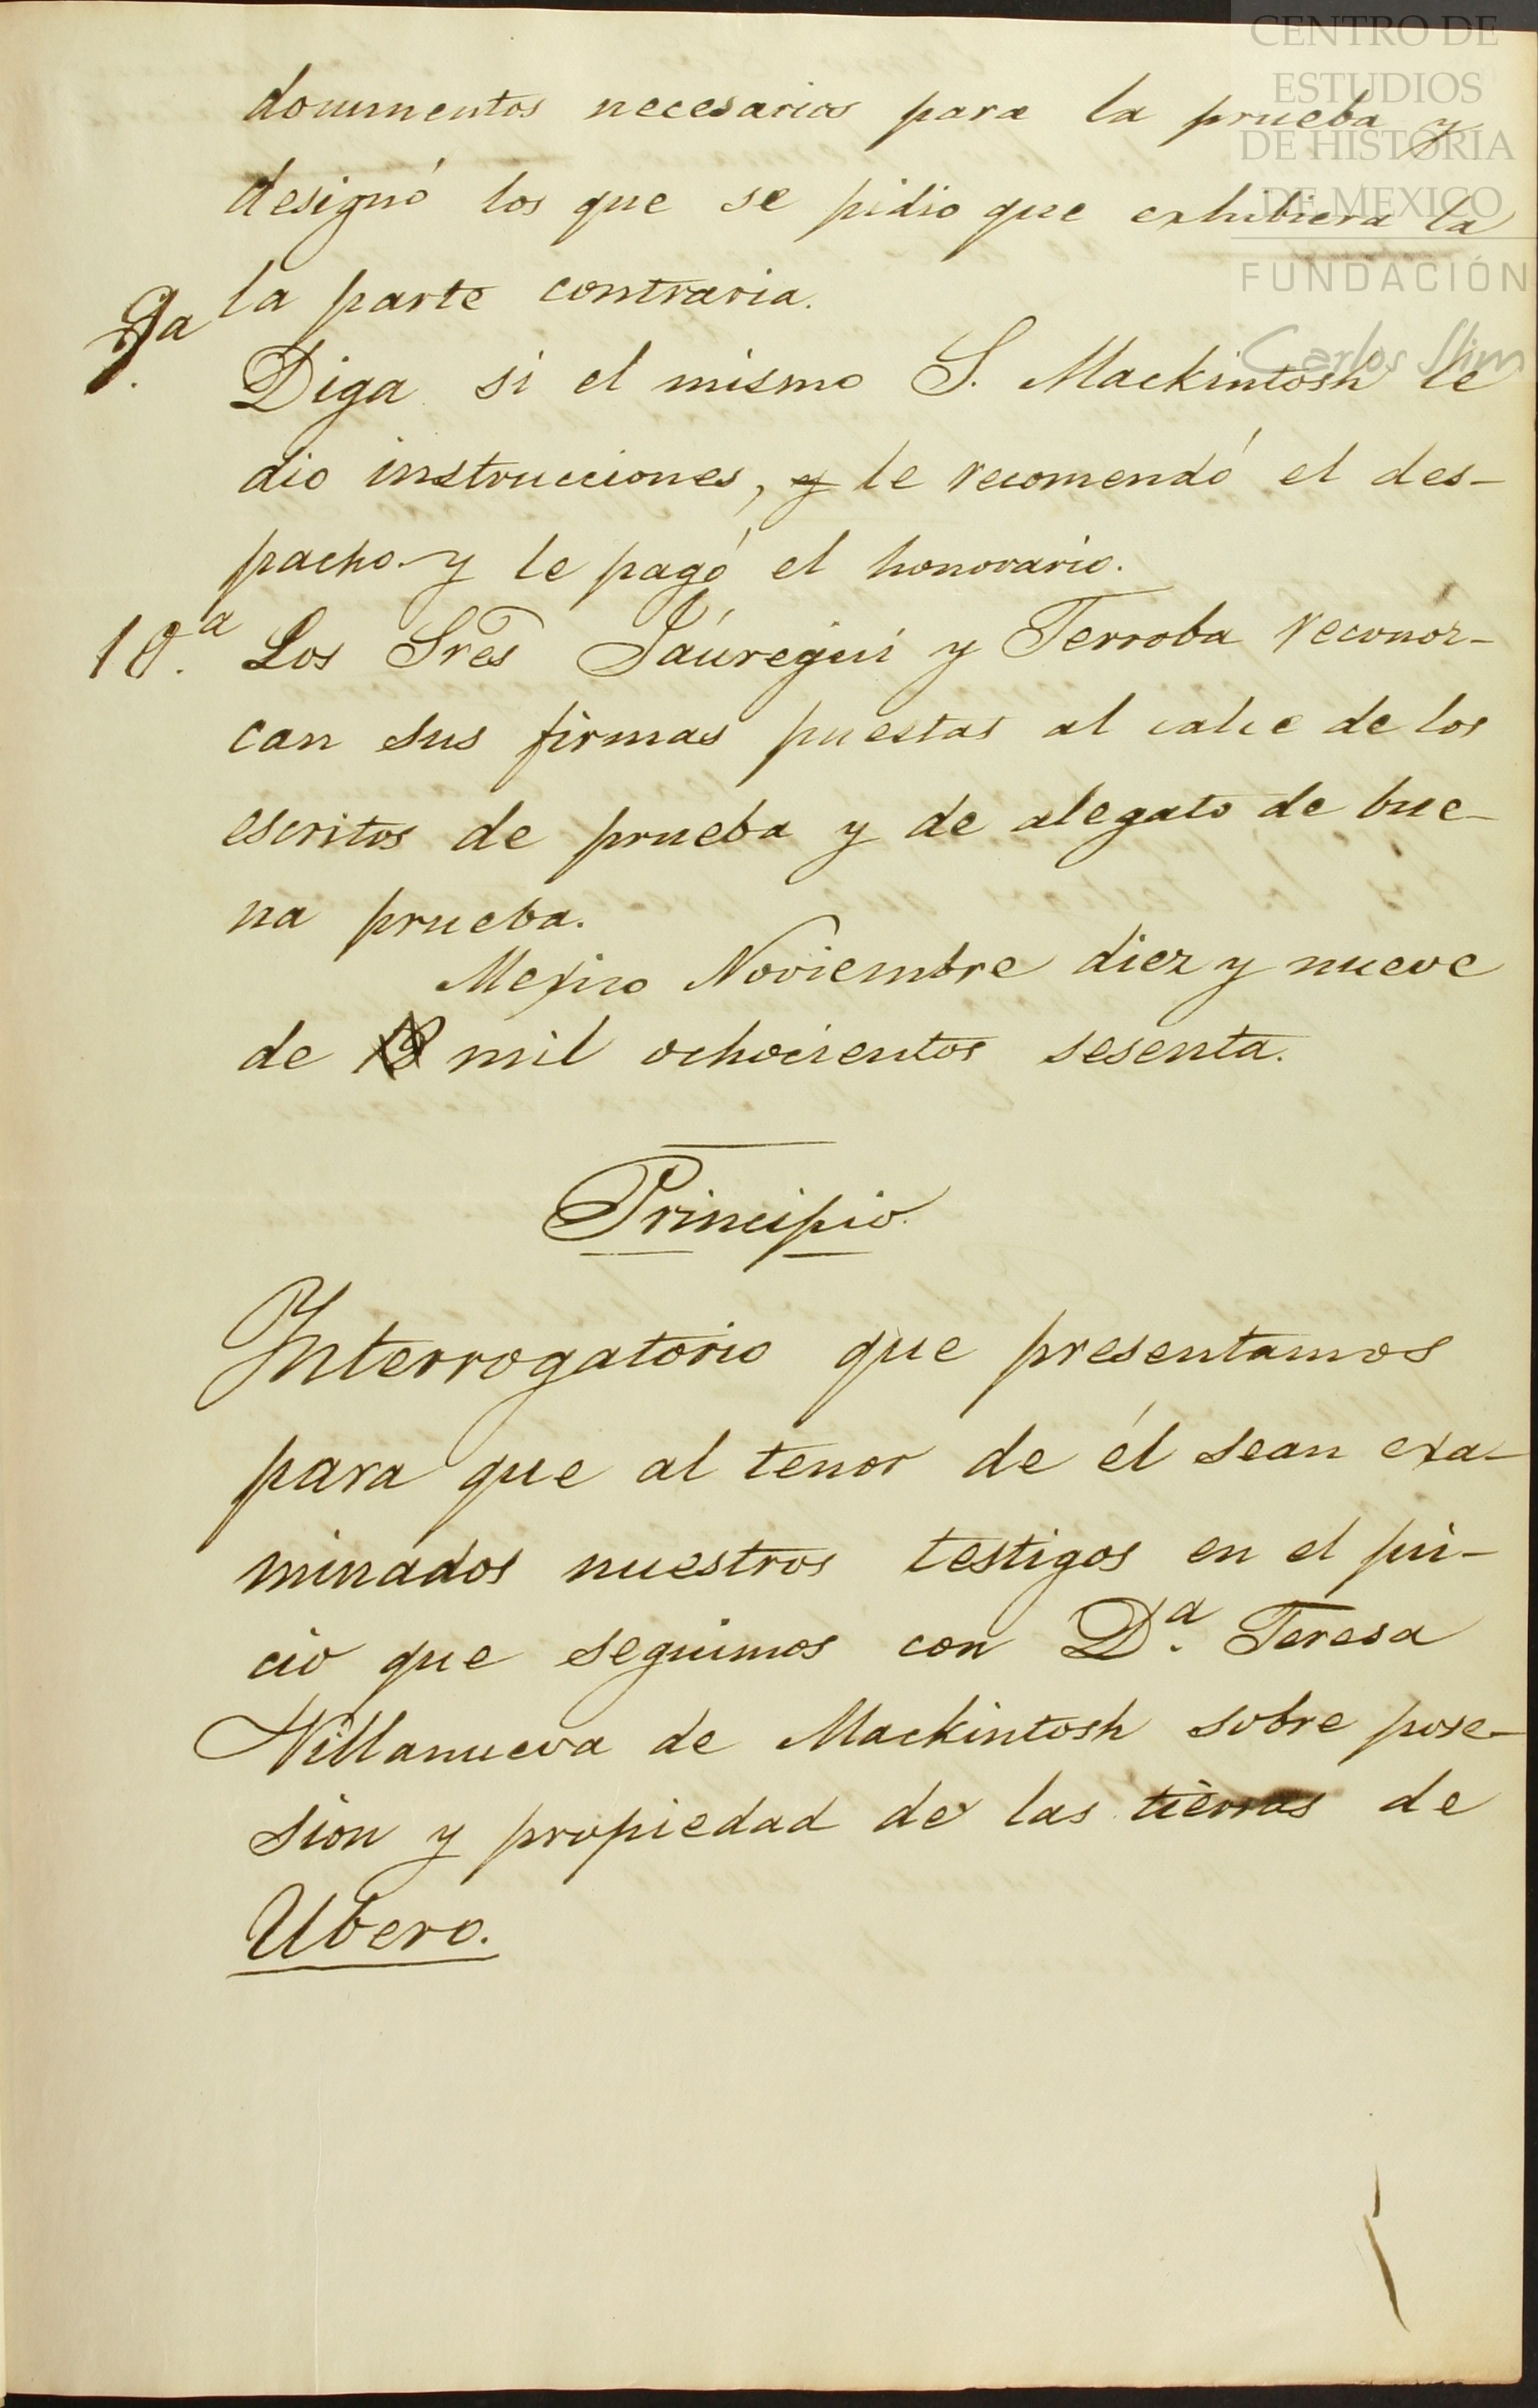 CENTRO DE
ESTUDIOS
DE HISTORIA
DE MEXICO
FUNDACIÓN
Carlos Slim
documentos necesarios para la prueba y
designó los que se pidio que exhibiera la
la parte contraria.
9a. Diga si el mismo S. Mackintosh le
dio instrucciones, y le recomendó el des-
pacho y le pagó el honorario.
10.a Los Sres Jáuregui y Terroba reconoz-
can sus firmas puestas al calce de los
escritos de prueba y de alegato de bue-
na prueba.
Mexico Noviembre diez y nueve
de mil ochocientos sesenta.
Principio.
Ynterrogatorio que presentamos
para que al tenor de él sean exa-
minados nuestros testigos en el jui-
cio que seguimos con D.a Teresa
Villanueva de Mackintosh sobre pose-
sion y propiedad de las tierras de
Ubero.